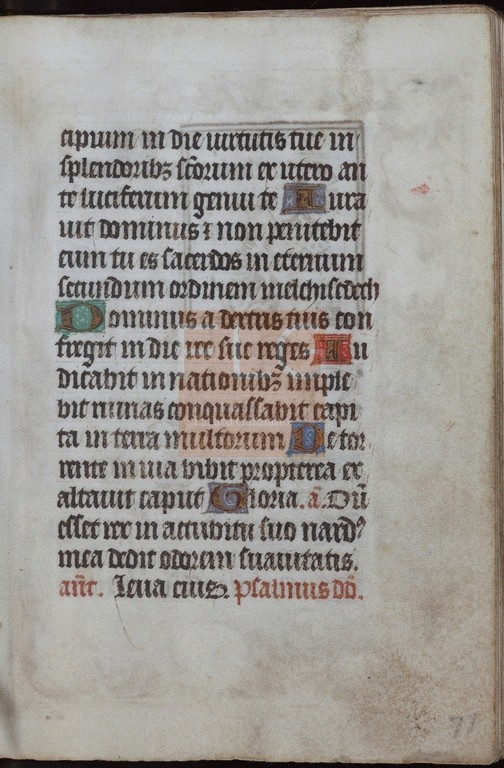 cipium in die uirtutis tue in
splendoribꝫ sc̃orum ex utero an
te luciferum genui te Iura
uit dominus ⁊ non penitebit
eum tu es sacerdos in eternum
secundum ordinem melchisedech
Dominus a dextris tuis con
fregit in die ire sue reges Iu
dicabit in nationibꝫ imple
bit ruinas conquassabit capi
ta in terra multorum De tor
rente in uia bibit propterea ex
altauit caput Gloria. a͞. Dũ
esset rex in accubitu suo nardꝰ
mea dedit odorem suauitatis.
an͞t. Leua eius. psalmus dõ.
71